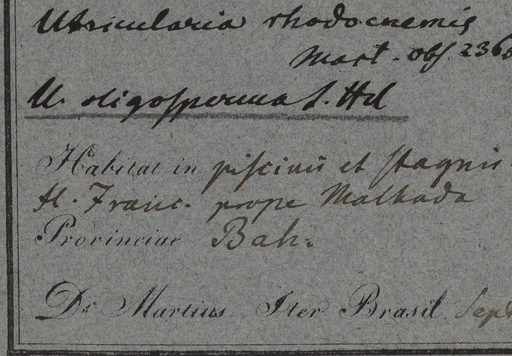 Utricularia rhodocnemis
Mart. obs. 236
U. oligosperma S. Hil
Habitat in piscinis et stagnis
fl. Franc. prope Malhada
Provinciae Bah.
Dr. Martius Iter Brasil. Sept